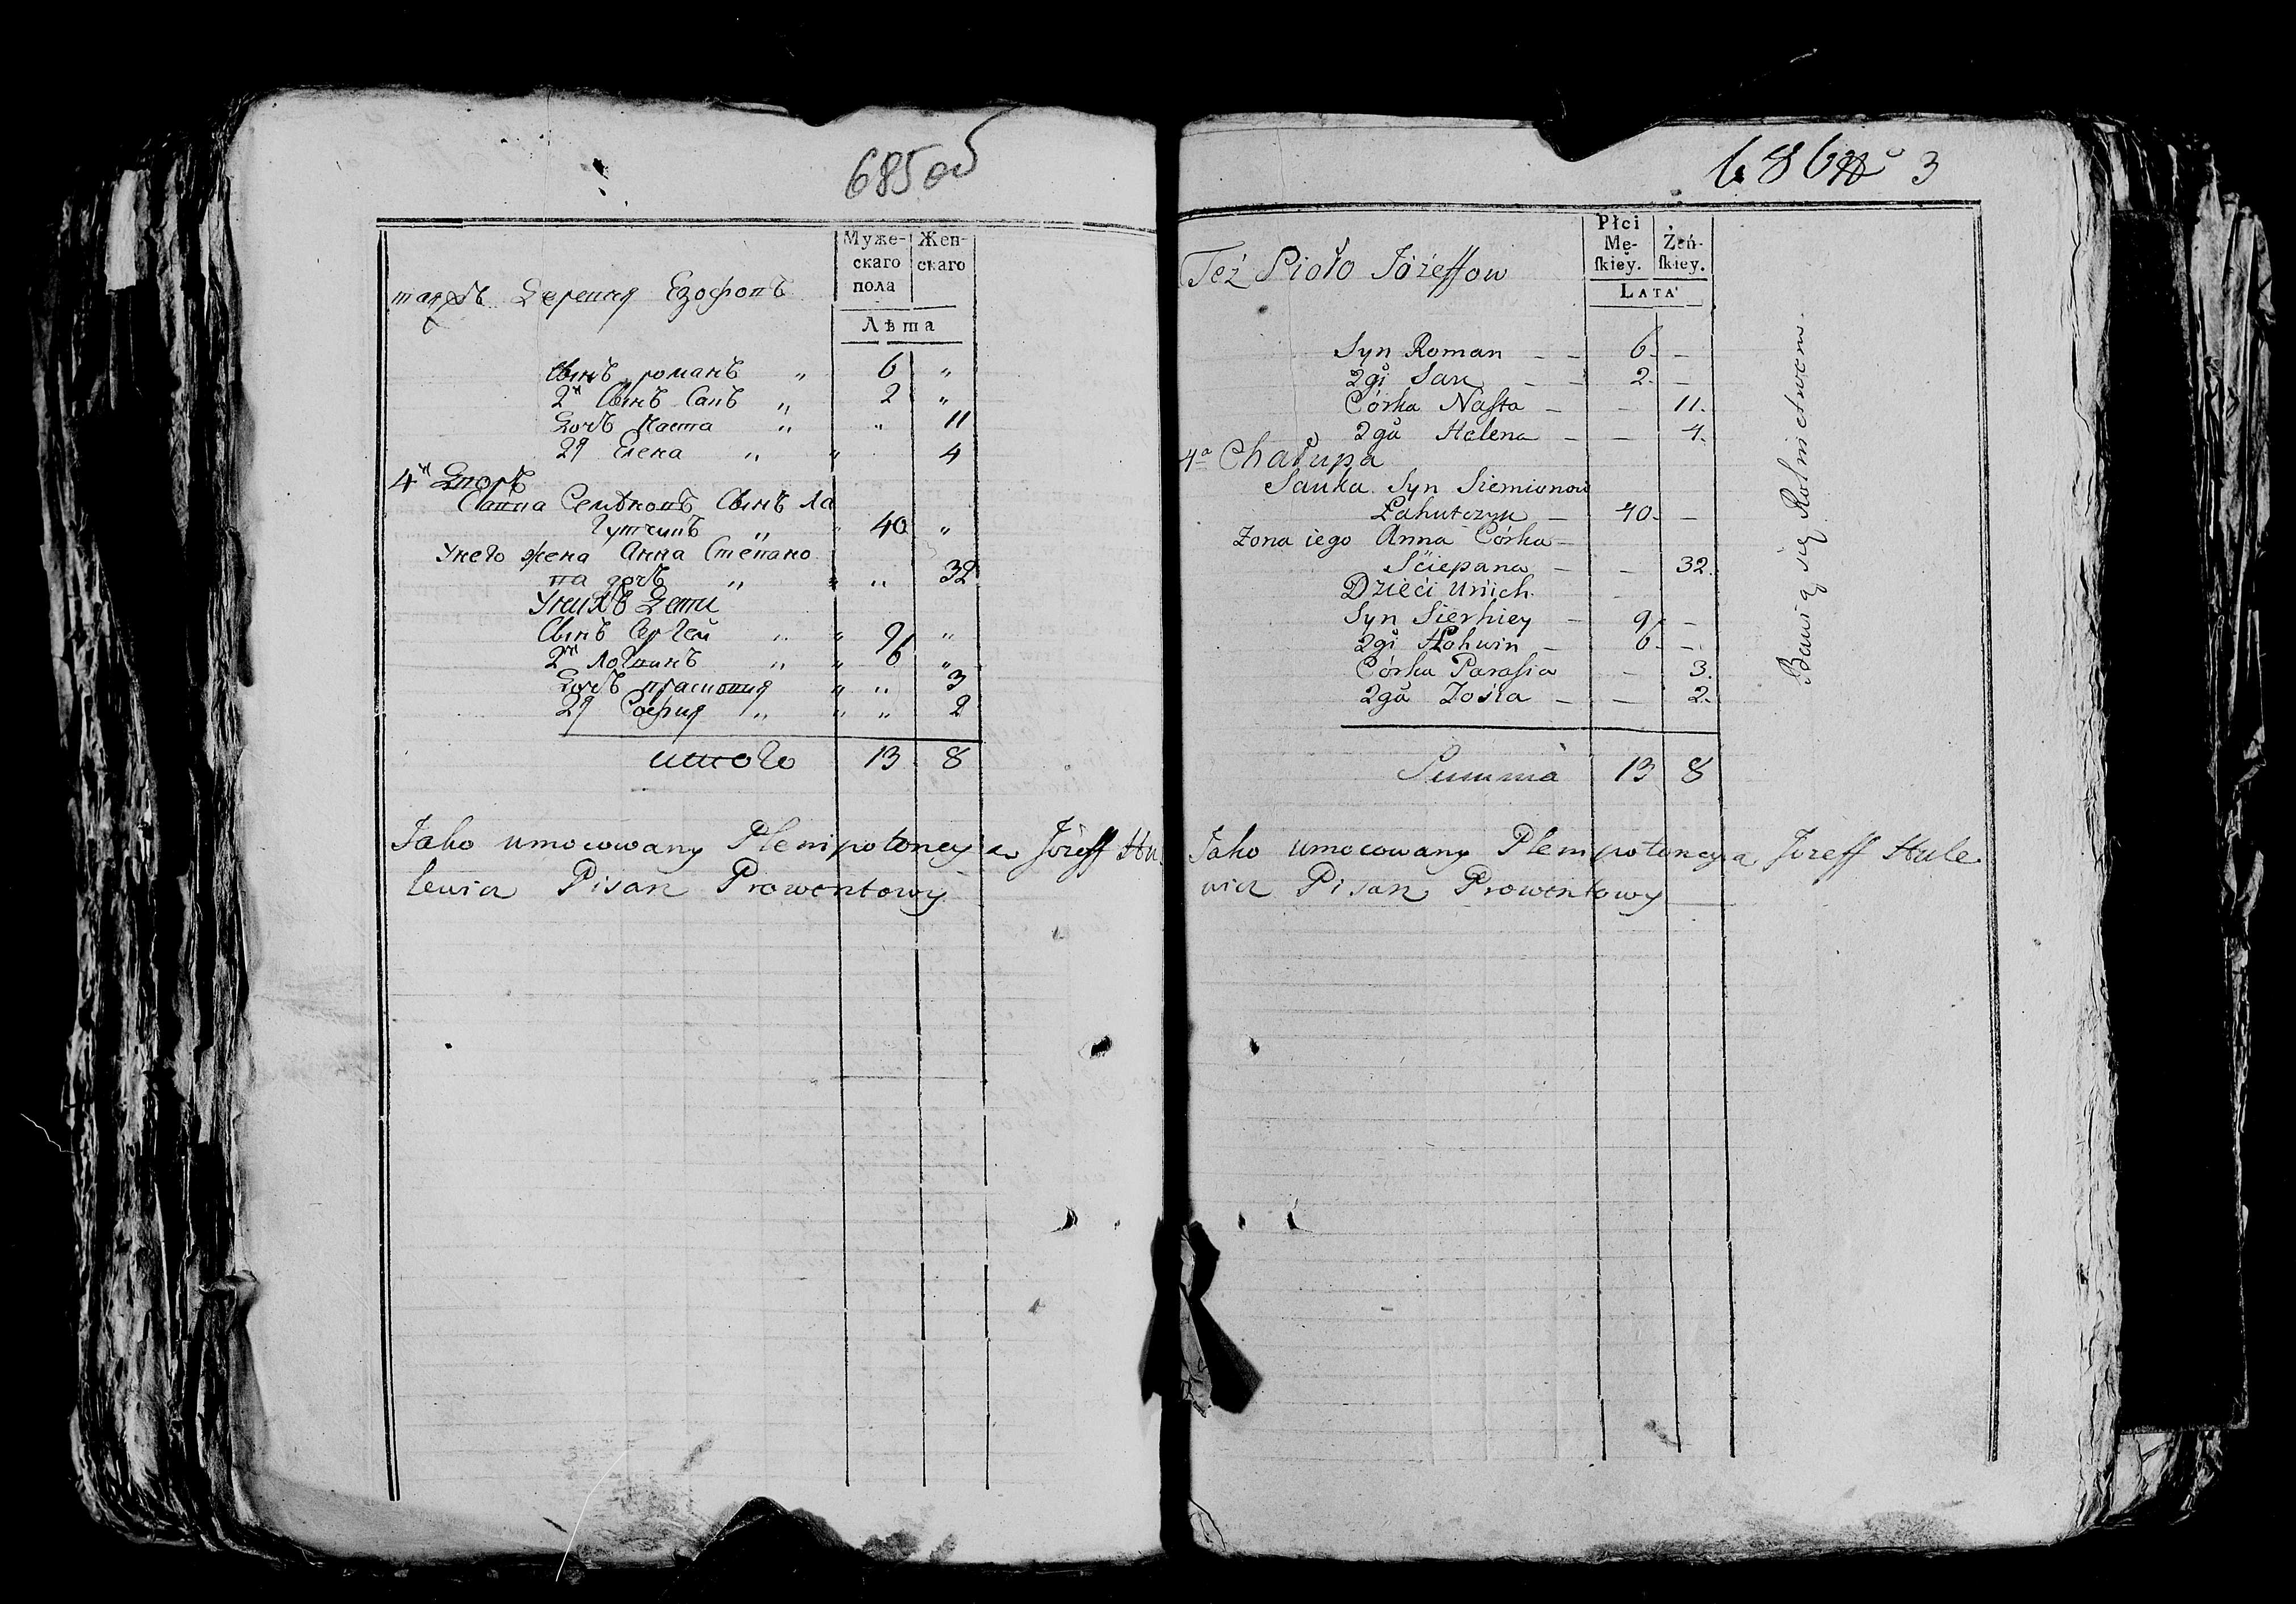 685 об
Муже-
скаго
пола
Жен-
скаго
Лѣта
таяжъ Деревня Езофовъ
Сынъ романъ " 6 "
2й Сынъ Сапъ " 2 "
Дочь Наста " " 11
2я Елена " " 4
4й Дворъ
Савка Семѣновъ Сынъ Ла
гутчинъ " " 40 "
Унего жена Анна Степано
ва дочь " " " 32
Унихъ Дети
Сынъ Сергей " " 9 "
2й Логвинъ " " 6 "
Дочь прасковия " " 3
2я София " " " 2
итого 13 8
Jako umocowany Plenipotencyą Józeff Hu
lewicz Pisarz Prowentowy
686 3
Płci
Mę-
skiey.
Żeń-
skiey.
LATA
Też Sioło Józeffow
Syn Roman - - 6. -
2gi San - - 2. -
Córka Nasta - - 11.
2ga Helena - - 4.
4a Chałupa
Sauka Syn Siemionow
Łahutczyn - 40. -
Żona iego Anna Córka -
Sciepana - - 32.
Dzieci unich
Syn Sierhiey - 9. -
2gi Łohwin - 6. -
Córka Parasia - 3.
2ga Zosia - - 2.
Summa 13 8
Bawią się Rolnictwem.
Jako umocowany Plenipotencyą Jozeff Hule
wicz Pisarz Prowentowy